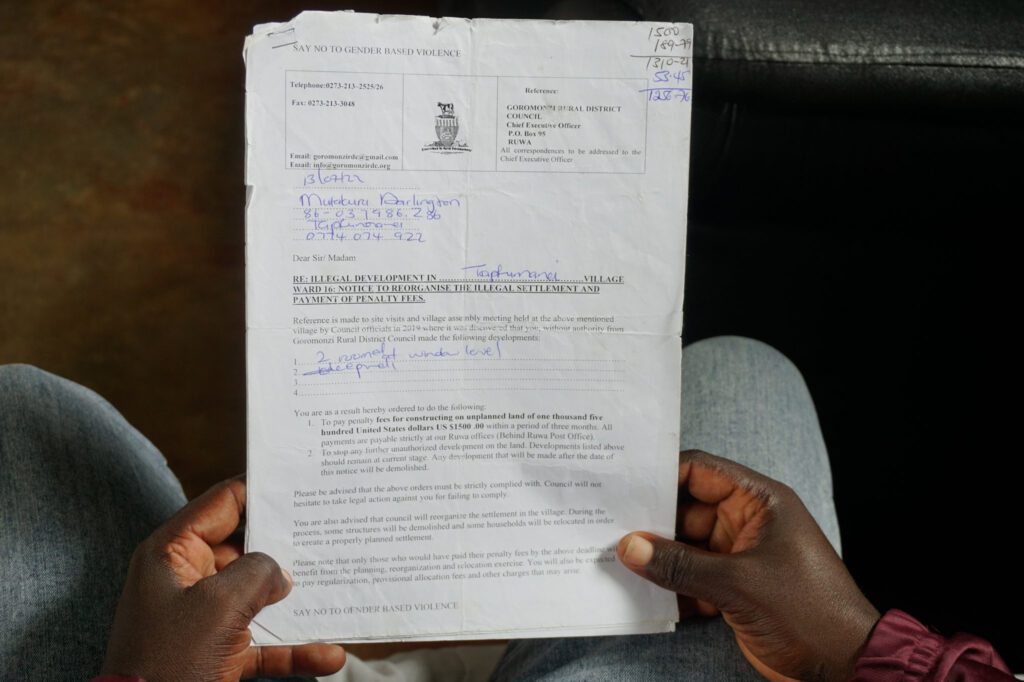 SAY NO TO GENDER BASED VIOLENCE
1500
189-79
1310-21
53-45
Telephone:0273-213 -2525/26
Fax: 0273-213-3048
Email: goromonzirdc@gmail.com
Email: info@goromonzirdc.org
Reference:
GOROMONZI RURAL DISTRICT
COUNCIL
Chief Executive Officer
P.O. Box 95
RUWA
All correspondences to be addressed to the
Chief Executive Officer
13/07/22
Darlington
0774 074 922
Dear Sir/ Madam
RE: ILLEGAL DEVELOPMENT IN ........................................VILLAGE
WARD 16: NOTICE TO REORGANISE THE ILLEGAL SETTLEMENT AND
PAYMENT OF PENALTY FEES.
Reference is made to site visits and village assembly meeting held at the above mentioned
village by Council officials in 2019 where it was discovered that you, without authority from
Goromonzi Rural District Council made the following developments:
1. 2 roomed window level
2. deepwell
3.
4.
You are as a result hereby ordered to do the following:
1. To pay penalty fees for constructing on unplanned land of one thousand five
hundred United States dollars US $1500 .00 within a period of three months. All
payments are payable strictly at our Ruwa offices (Behind Ruwa Post Office).
2. To stop any further unauthorized development on the land. Developments listed above
should remain at current stage. Any development that will be made after the date of
this notice will be demolished.
Please be advised that the above orders must be strictly complied with. Council will not
hesitate to take legal action against you for failing to comply.
You are also advised that council will reorganize the settlement in the village. During the
process, some structures will be demolished and some households will be relocated in order
to create a properly planned settlement.
Please note that only those who would have paid their penalty fees by the above deadline will
benefit from the planning, reorganization and relocation exercise. You will also be expected
to pay regularization, provisional allocation fees and other charges that may arise.
SAY NO TO GENDER BASED VIOLENCE